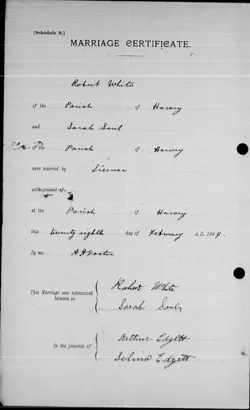 [Schedule B.]
MARRIAGE CERTIFICATE.
Robert White
of the Parish of Harvey
and Sarah Saul
of the Parish of Harvey
were married by License
with consent of
at the Parish of Harvey
this twenty eighth day of February A.D. 188
By me,
This Marriage was solemnized between us
Robert White
Sarah Saul
In the presence of
Arthur Edgett
Selina Edgett